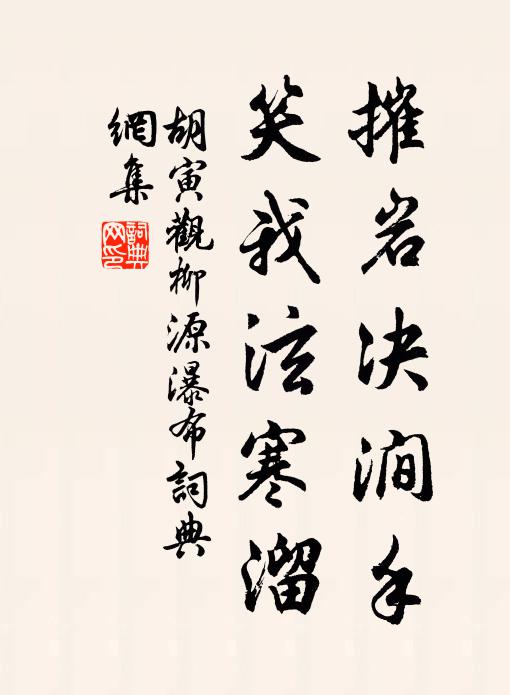 摧岩决涧手
笑我泫寒溜
胡寅觀柳源瀑布詞典
網集
詞典網印